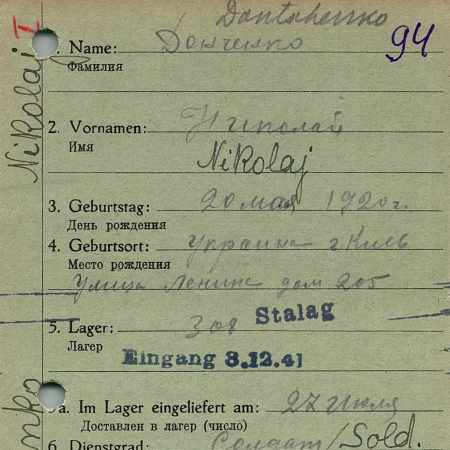 Dontschenko
94
1. Name: Донченко
Фамилия
2. Vornamen: Николай
Имя
Nikolaj
3. Geburtstag: 20 мая 1920 г.
День рождения
4. Geburtsort: Украина г Киев
Место рождения
Улица Ленина дом 205
5. Lager: 308 Stalag
Лагер
Eingang 3.12.41
5a. Im Lager eingeliefert am: 27 июля
Доставлен в лагер (число)
6. Dienstgrad: Солдат/Sold.
Nikolaj I
enko